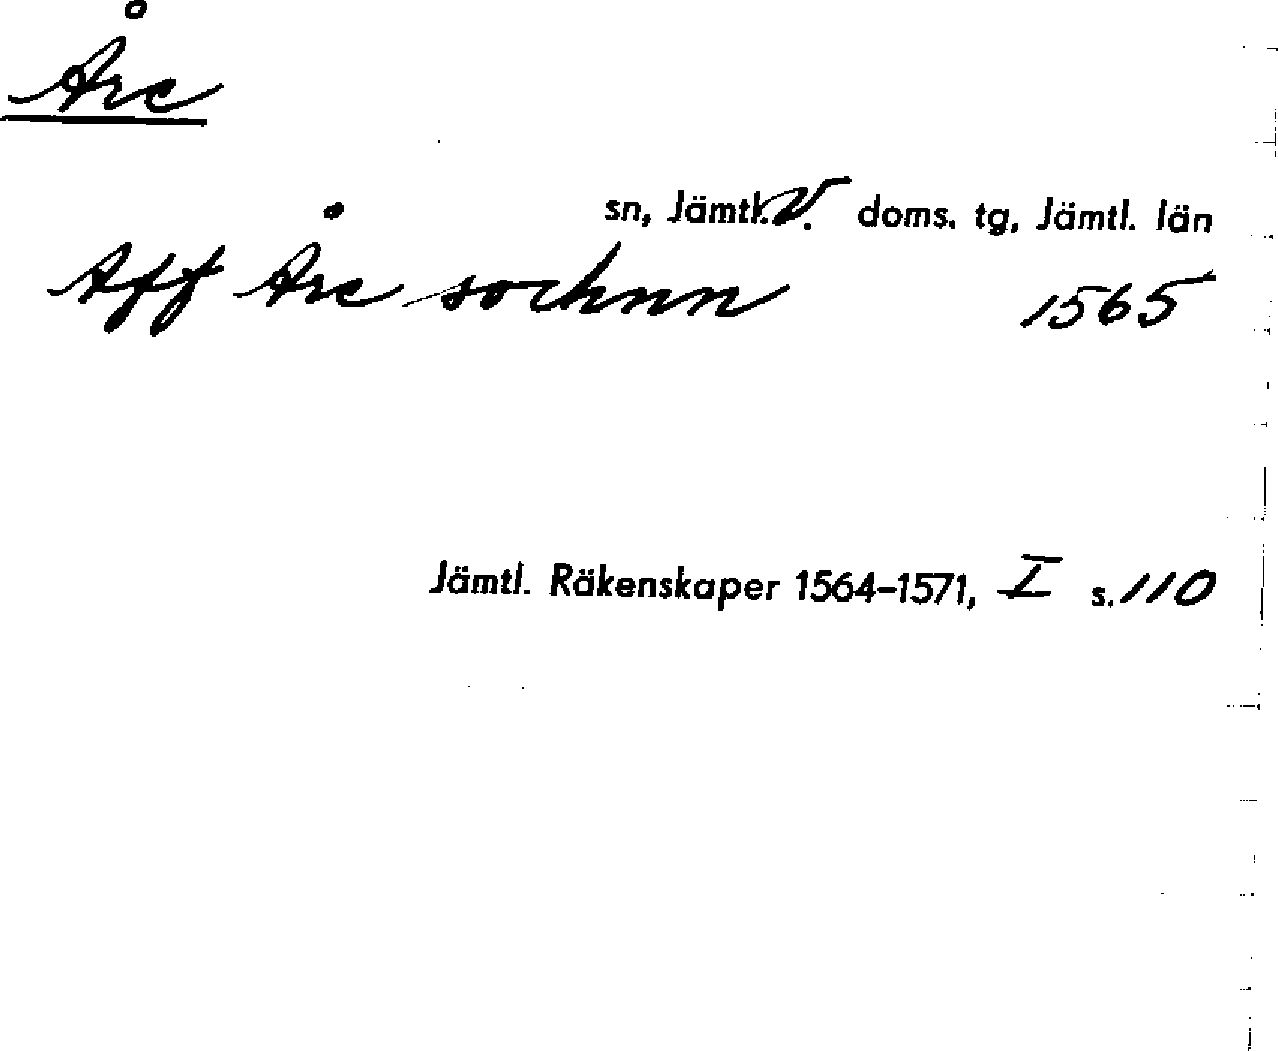 Åre
sn, Jämtl. V. doms. tg, Jämtl. län
Aff Åre sochnn 1565
Jämtl. Räkenskaper 1564-1571, I s. 110